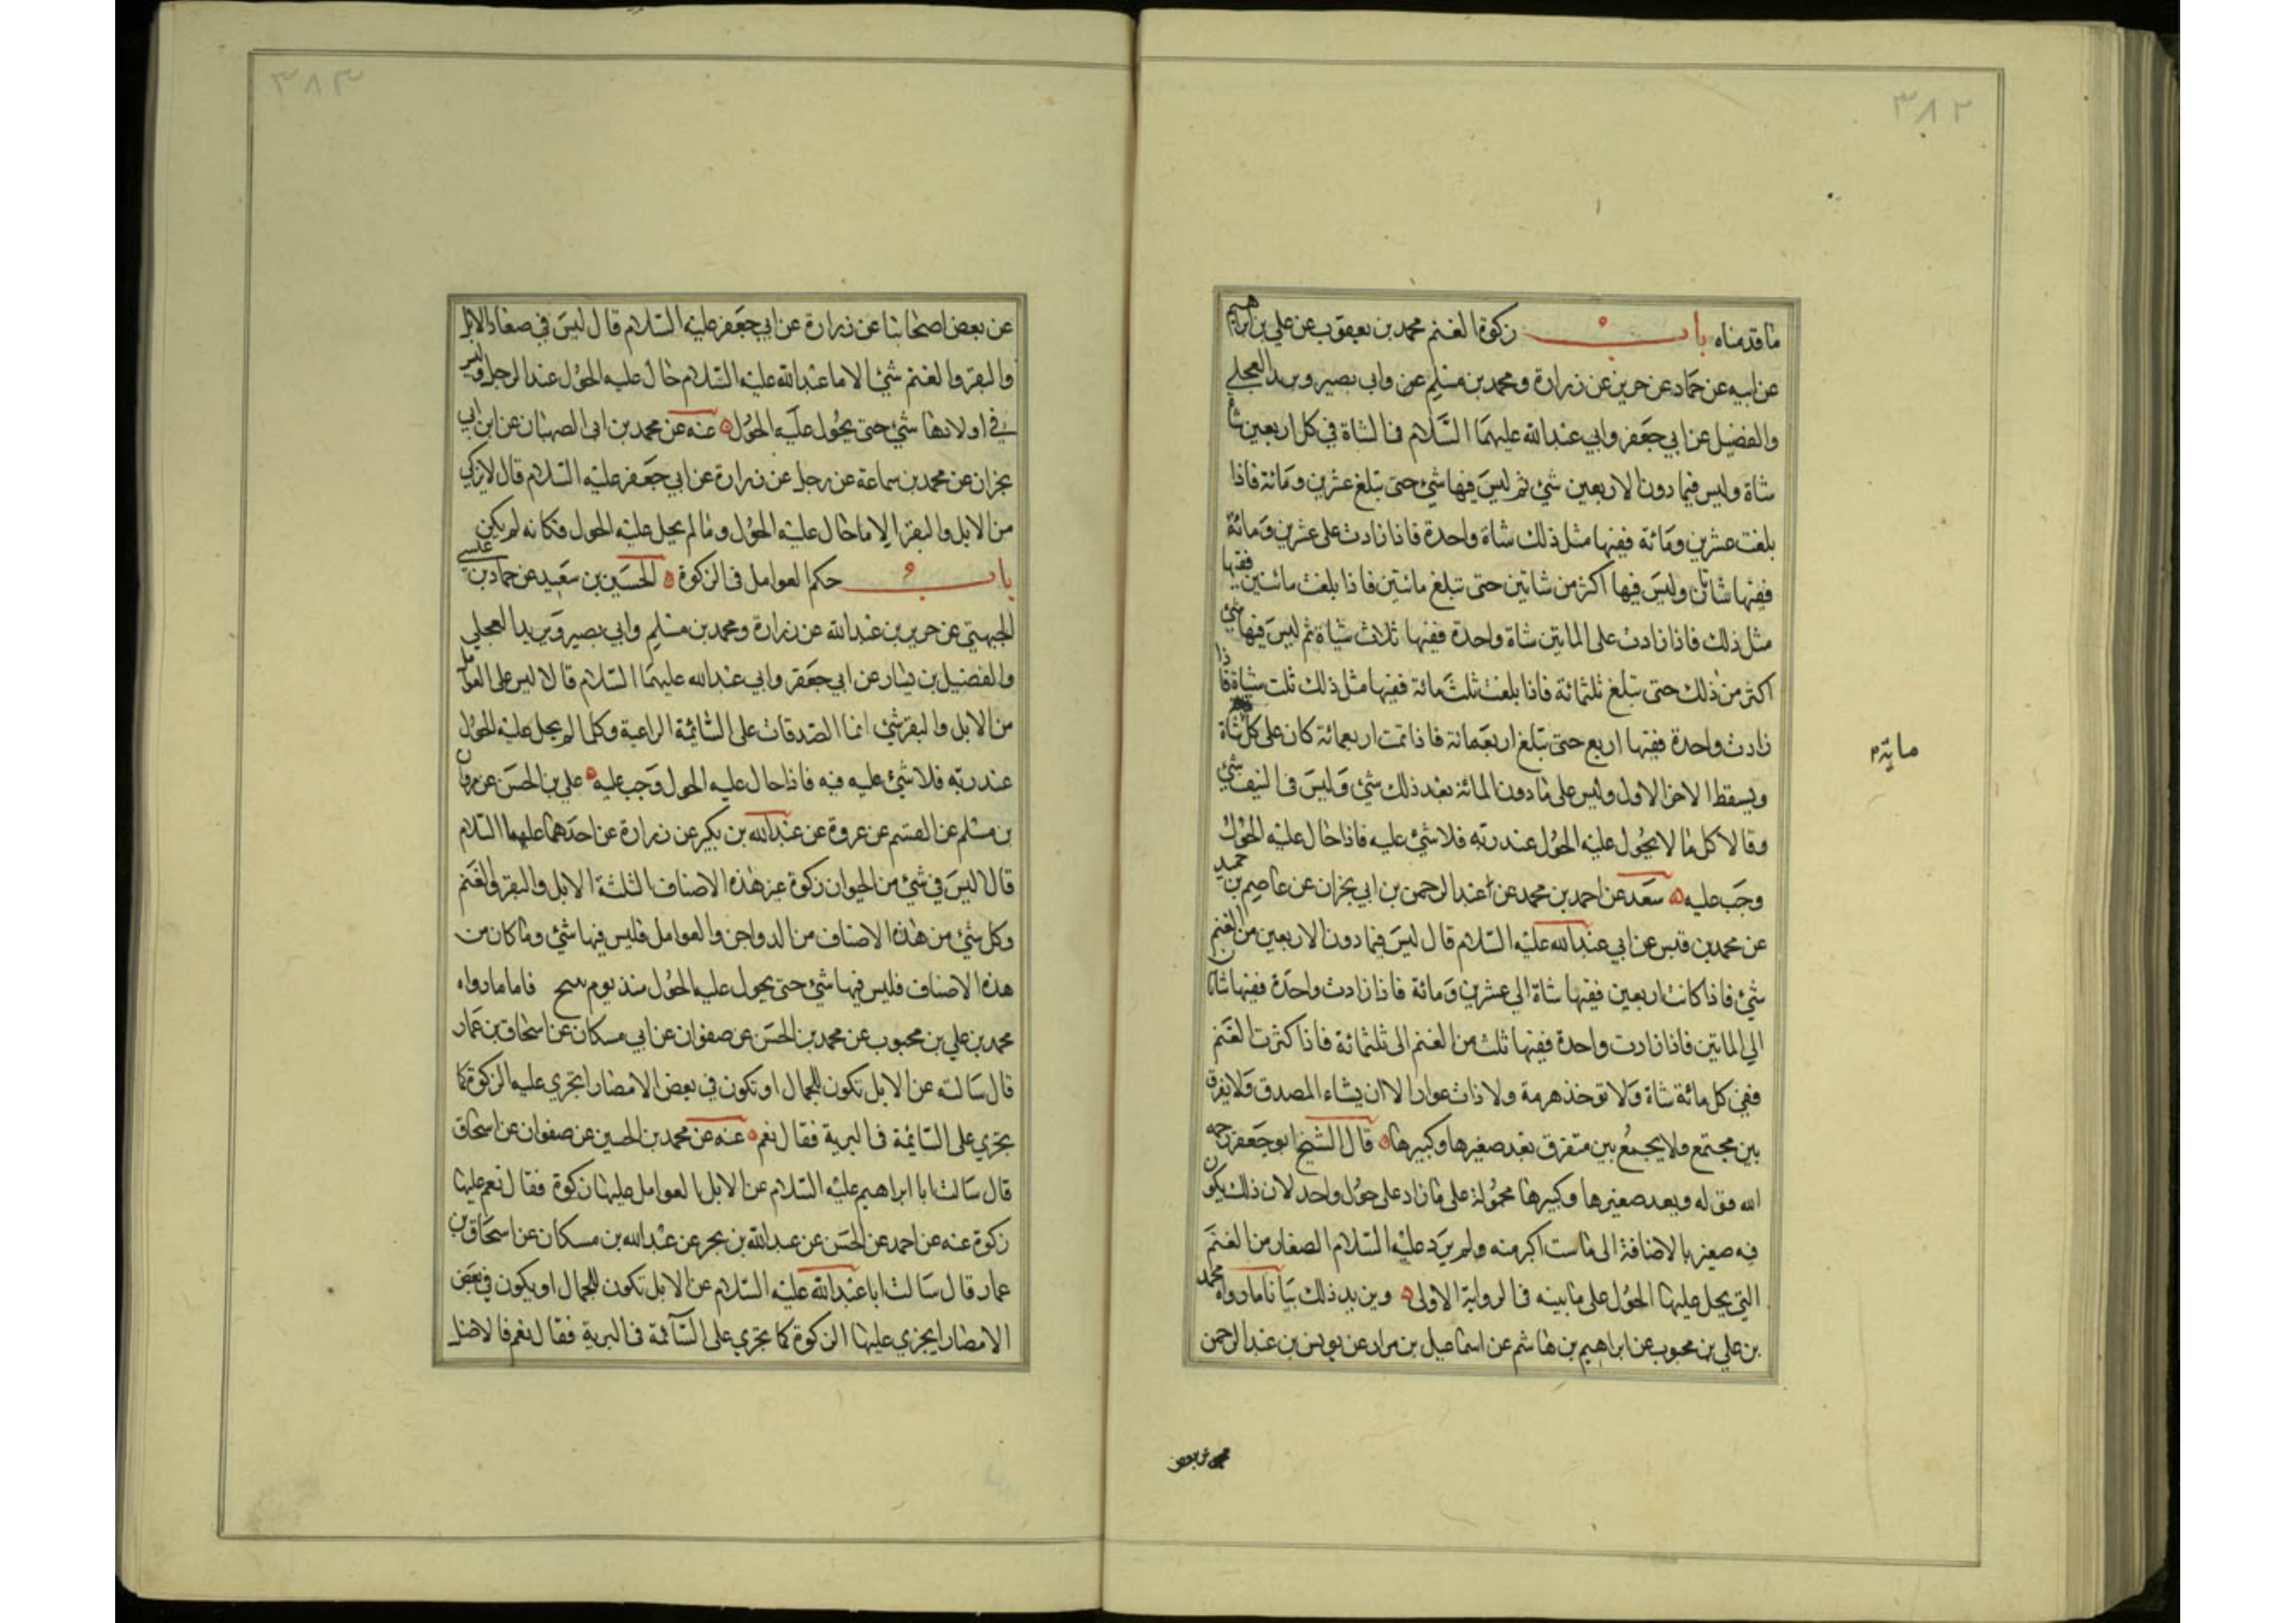 ٣٨٢
ما قدمناه باب زكوة الغنم محمد بن يعقوب عن علي بن ابراهيم
عن ابيه عن حماد عن حريز عن زرارة ومحمد بن مسلم عن وابي بصير وبريد العجلي
والفضيل عن ابي جعفر وابي عبدالله عليهما السلام في الشاة في كل اربعين شاة
شاة وليس فيما دون الاربعين شئ ثم ليس فيها شئ حتى تبلغ عشرين ومائة فاذا
بلغت عشرين ومائة ففيها مثل ذلك شاة واحدة فاذا زادت على عشرين ومائة
ففيها شاتان وليس فيها اكثر من شاتين حتى تبلغ مائتين فاذا بلغت مائتين ففيها
مثل ذلك فاذا زادت على المايتين شاة واحدة ففيها ثلاث شياة ثم ليس فيها شئ
اكثر من ذلك حتى تبلغ ثلثمائة فاذا بلغت ثلث مائة ففيها مثل ذلك ثلث شياة فاذا
زادت واحدة ففيها اربع حتى تبلغ اربعمائة فاذا تمت اربعمائة كان على كل شاة
مايةم
ويسقط الامر الاول وليس على ما دون المائة بعد ذلك شئ وليس في النيف شئ
وقالا كل ما لا يحول عليه الحول عند ربه فلا شئ عليه فاذا حال عليه الحول
وجب عليه سعد عن احمد بن محمد عن عبدالرحمن بن ابي نجران عن عاصم بن حميد
عن محمد بن قيس عن ابي عبدالله عليه السلام قال ليس فيما دون الاربعين من الغنم
شئ فاذا كانت اربعين ففيها شاة الي عشرين ومائة فاذا زادت واحدة ففيها شاتان
الي المايتين فاذا زادت واحدة ففيها ثلث من الغنم الى ثلثمائة فاذا كثرت الغنم
ففي كل مائة شاة ولا توخذ هرمة ولا ذات عوار الا ان يشاء المصدق ولا يفرق
بين مجتمع ولا يجمع بين متفرق بعد صغيرها وكبيرها قال الشيخ ابو جعفر رحمه
الله فقوله ويعد صغيرها وكبيرها محمولة على ما زاد على حول واحد لان ذلك يكون
فيه صغير بالاضافة الى ما ست اكبر منه ولم يرد عليه السلام الصغار من الغنم
التي يحل عليها الحول على ما بينه في الرواية الاولى ويزيد ذلك بيانا ما رواه محمد
بن علي بن محبوب عن ابراهيم بن هاشم عن اسماعيل بن مرار عن يونس بن عبدالرحمن
عن بعض
٣٨٣
عن بعض اصحابنا عن زرارة عن ابي جعفر عليه السلام قال ليس في صغار الابل
والبقر والغنم شئ الا ما عبدالله عليه السلام حال عليه الحول عند الرجل وليس
في اولادها شئ حتى يحول عليه الحول عنه عن محمد بن ابي الصهبان عن ابن ابي
نجران عن محمد بن سماعة عن رجل عن زرارة عن ابي جعفر عليه السلام قال لا يزكي
من الابل والبقر الا ما حال عليه الحول وما لم يحل عليه الحول فكانه لم يكن
باب حكم العوامل في الزكوة الحسين بن سعيد عن حماد بن عيسي
الجهني عن حريز بن عبدالله عن زرارة ومحمد بن مسلم وابي بصير وبريد العجلي
والفضيل بن يسار عن ابي جعفر وابي عبدالله عليهما السلام قالا ليس على العوامل
من الابل والبقر شئ انما الصدقات على السائمة الراعية وكلما لم يحل عليه الحول
عند ربه فلا شئ عليه فيه فاذا حال عليه الحول وجب عليه علي بن الحسن عن هرون
بن مسلم عن القسم عن عروة عن عبدالله بن بكير عن زرارة عن احدهما عليهما السلام
قال ليس في شئ من الحيوان زكوة غير هذه الاصناف الثلثة الابل والبقر والغنم
وكل شئ من هذه الاصناف من الدواجن والعوامل فليس فيها شئ وما كان من
هذه الاصناف فليس فيها شئ حتى يحول عليه الحول منذ يوم ينتج فاما ما رواه
محمد بن علي بن محبوب عن محمد بن الحسن عن صفوان عن ابي مسكان عن اسحاق بن عمار
قال سالته عن الابل تكون للجمال او تكون في بعض الامصار اتجري عليه الزكوة كما
تجري على السائمة في البرية فقال نعم عنه عن محمد بن الحسين عن صفوان عن اسحاق
قال سالت ابا ابراهيم عليه السلام عن الابل العوامل عليها زكوة فقال نعم عليها
زكوة عنه عن احمد عن الحسن عن عبدالله بن بحر عن عبدالله بن مسكان عن اسحاق بن
عمار قال سالت ابا عبدالله عليه السلام عن الابل تكون للجمال او يكون في بعض
الامصار ايجزي عليها الزكوة كما تجري على السآئمة في البرية فقال نعم فالاصل